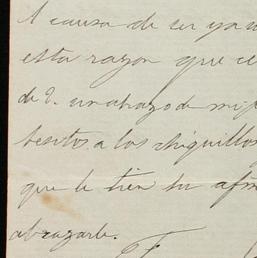 A causa de ser ya
esta razon que
de V. un abrazo de mi
besitos a los chiquillos
que le tien su
abrazarle.